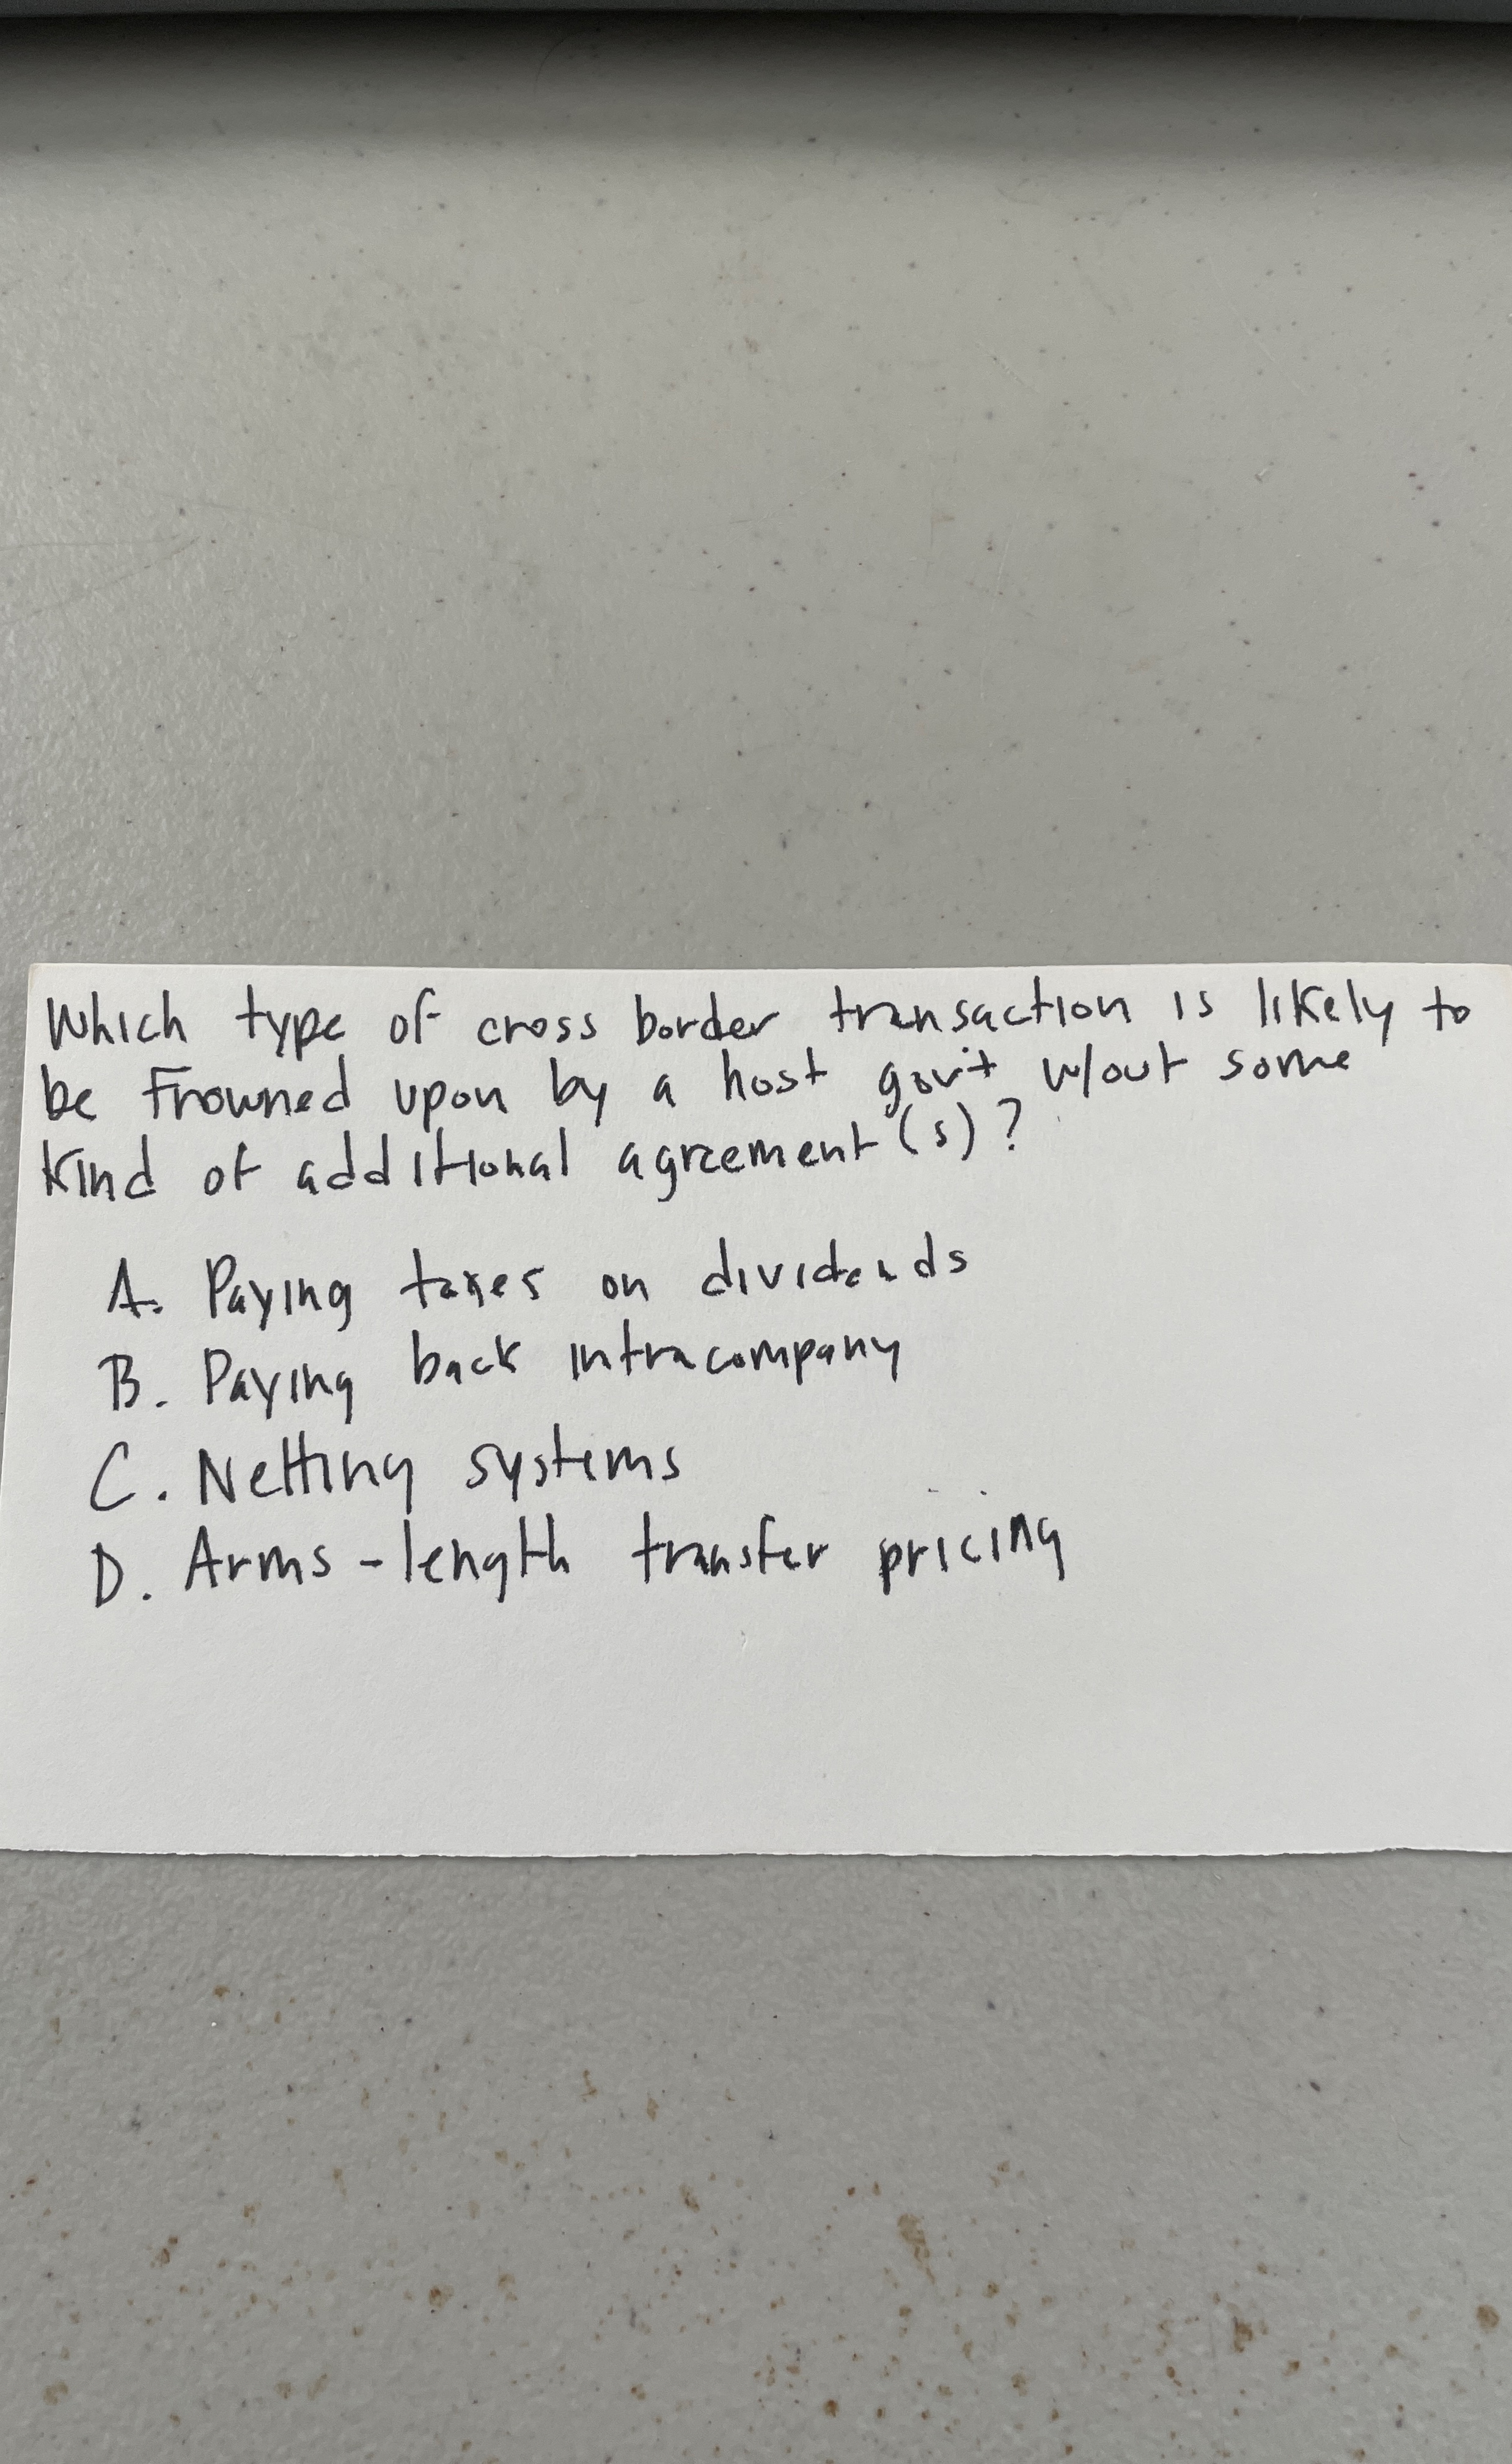 Which type of cross border transaction is likely to
be Frowned upon by a host gov't w/out some
kind of additional agreement(s)?
A. Paying taxes on dividends
B. Paying back intracompany
C. Netting systems
D. Arms-length transfer pricing